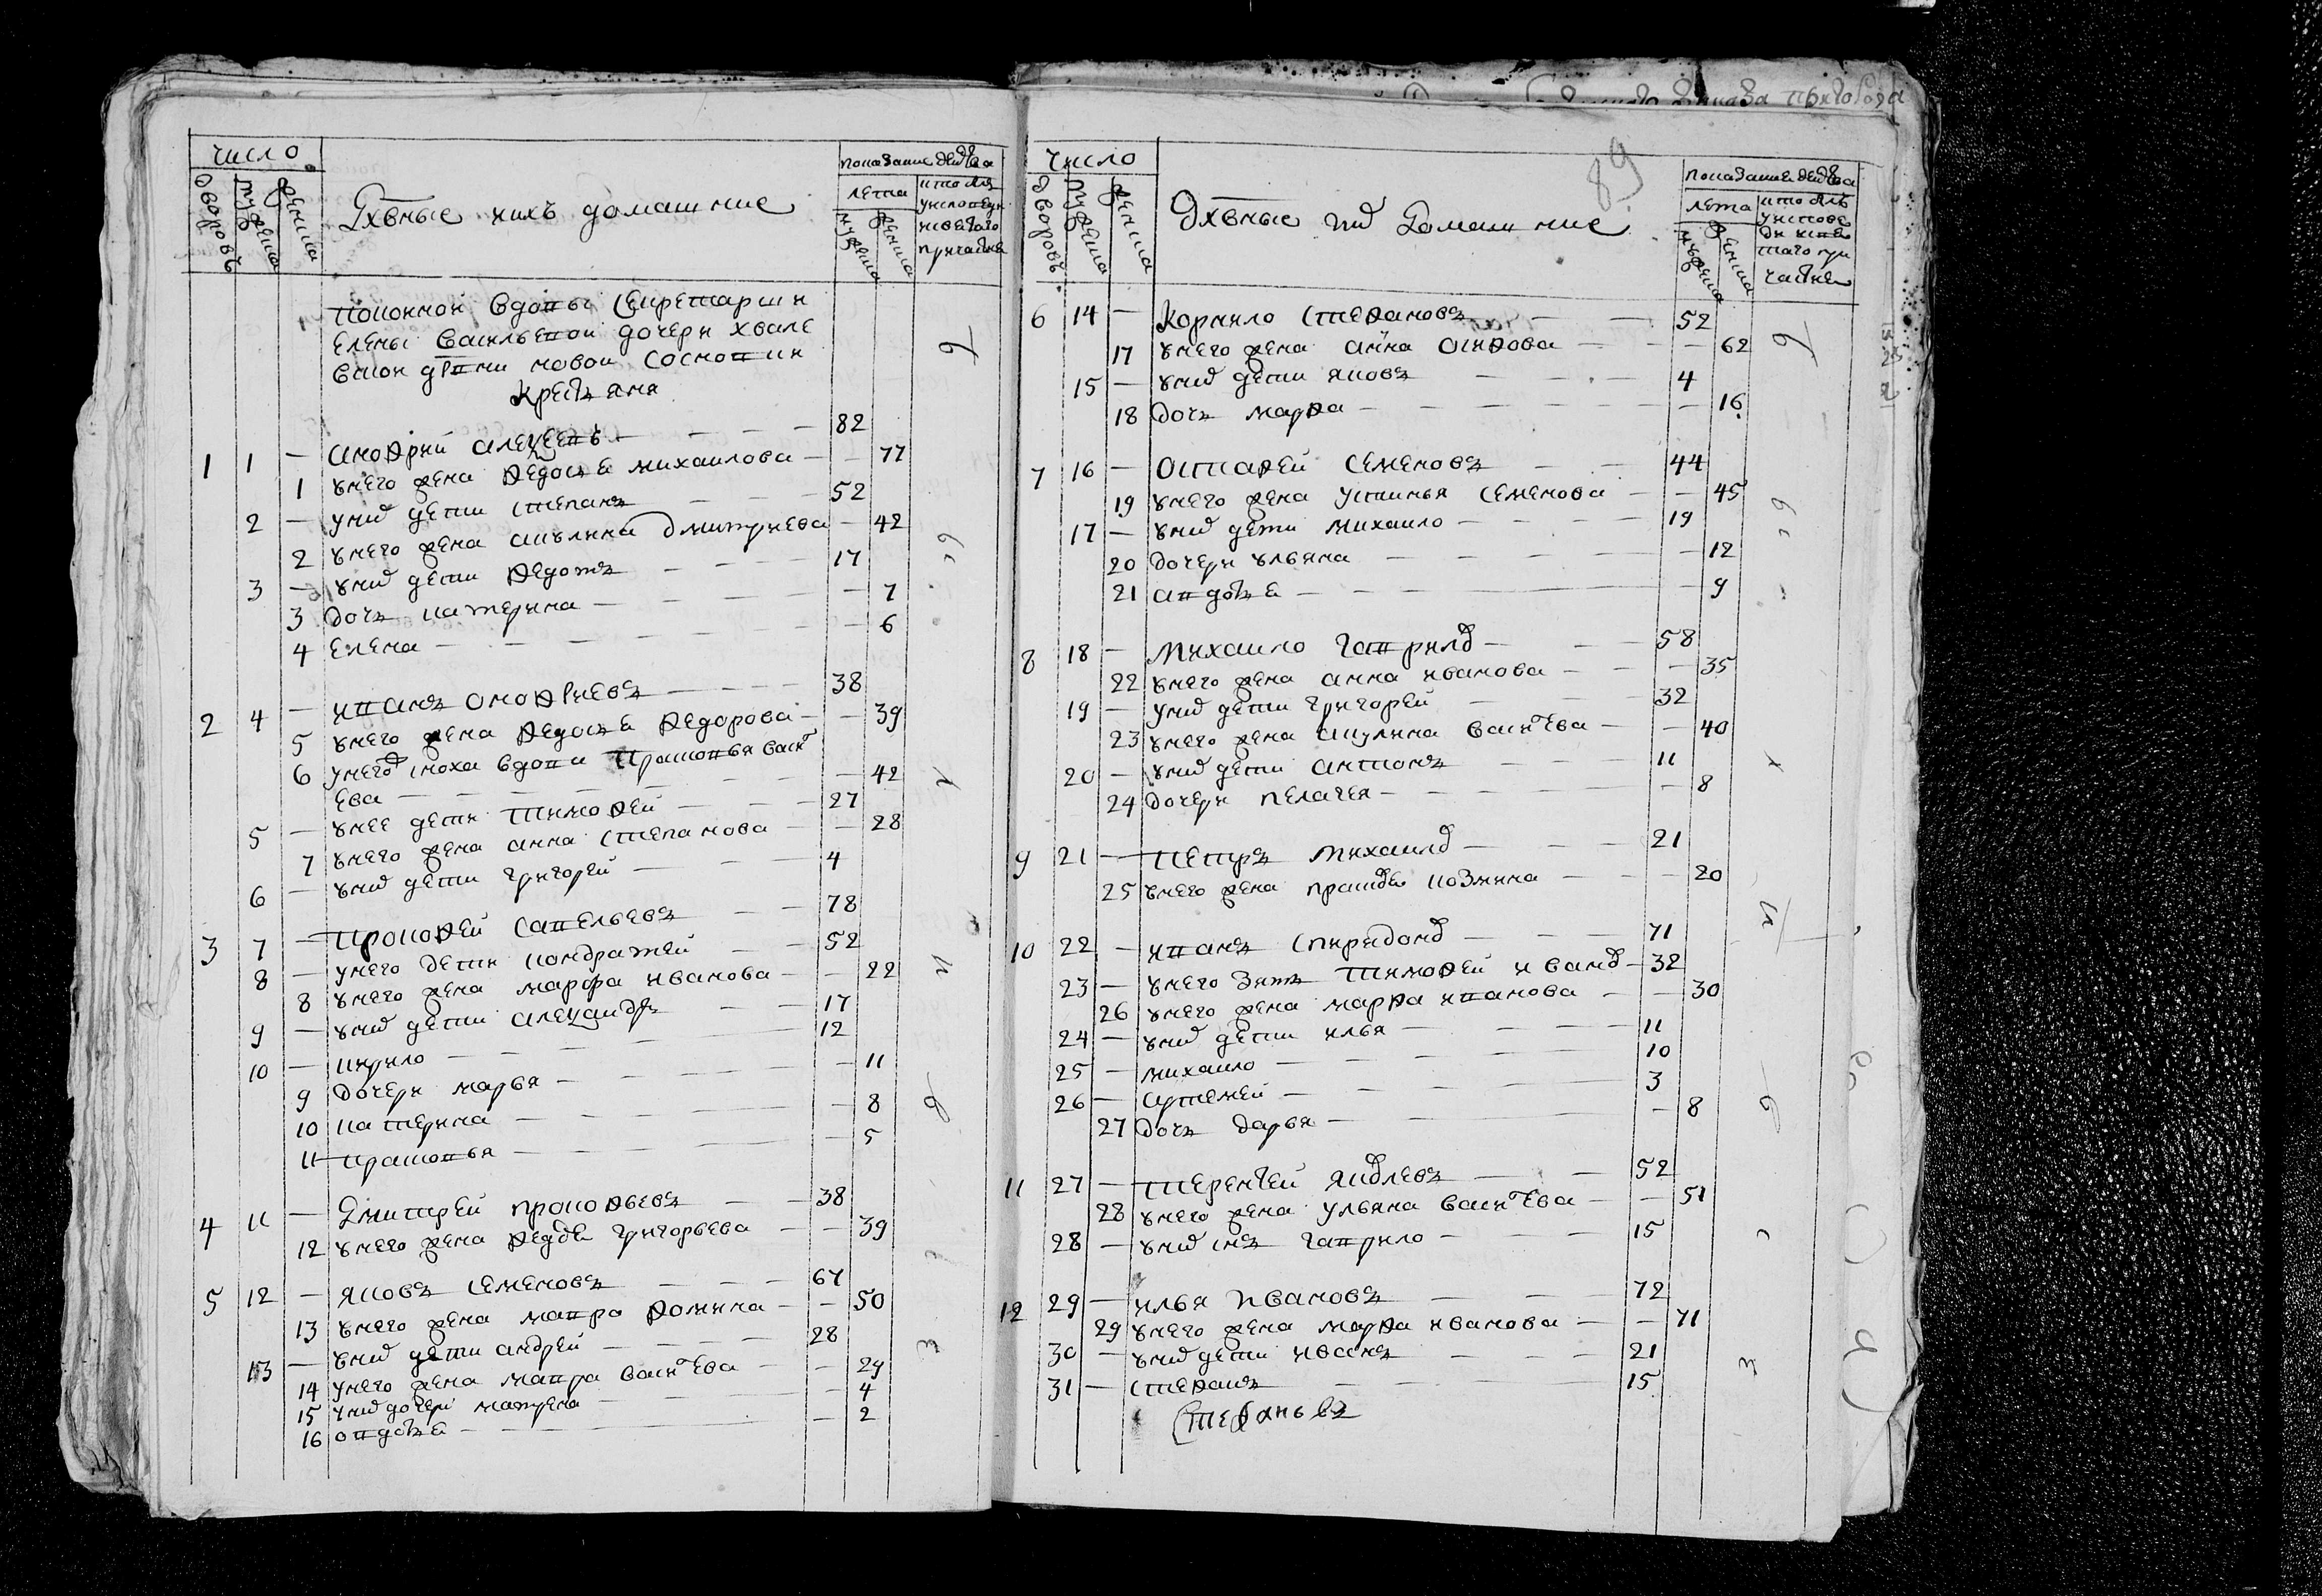 число
дворовъ
мужеска
женска
Дхвные ихъ домашние
показание действа
лета
мужеска
женска
кто былъ
у исповеди
и святаго
причастия
покоиной вдовы секретарши
Елены Васильевой дочери Хвале
вской детми новой Сосновки
крестьяня
1 1 — Анофрий Алексеевъ — 82
1 у него жена Федосья Михаилова — 77
2 — у них дети Степанъ — 52
2 у него жена Акулина Дмитриева — 42
3 — у них дети Федотъ — 17
3 дочь Катерина — 7
4 Елена — 6
2 4 — Иванъ Анофриевъ — 38
5 у него жена Федосья Федорова — 39
6 у него сноха вдова Прасковья Васил
ева — 42
5 — у нее дети Тимофей — 27
7 у него жена Анна Степанова — 28
6 — у них дети Григорей — 4
3 7 — Прокофей Савельевъ — 78
8 — у него дети Кондратей — 52
8 у него жена Марфа Иванова — 22
9 — у них дети Александръ — 17
10 — Кирило — 12
9 дочери Марья — 11
10 Катерина — 8
11 Прасковья — 5
4 11 — Дмитрей Прокофьевъ — 38
12 у него жена Федосья Григорьева — 39
5 12 — Яковъ Семеновъ — 67
13 у него жена Мавра Фомина — 50
13 — у них дети Андрей — 28
14 у него жена Мавра Василева — 29
15 у них дочери Матрена — 4
16 Овдотья — 2
89
число
дворовъ
мужеска
женска
Дхвные их Домашние
показание действа
лета
мужеска
женска
кто былъ
у испове
ди и свя
таго при
частия
6 14 — Корнило Стефановъ — 52
17 у него жена Анна Осифова — 62
15 — у них дети Яковъ — 4
18 дочь Марфа — 16
7 16 — Остафей Семеновъ — 44
19 у него жена Устинья Семенова — 45
17 — у них дети Михаило — 19
20 дочери Ульяна — 12
21 Авдотья — 9
8 18 — Михаило Гаврилов — 58
22 у него жена Анна Иванова — 35
19 — у них дети Григорей — 32
23 у него жена Акулина Василева — 40
20 — у них дети Антонъ — 11
24 дочери Пелагея — 8
9 21 — Петръ Михаилов — 21
25 у него жена Прасковья Козмина — 20
10 22 — Иванъ Спиридонов — 71
23 — у него зять Тимофей Иванов — 32
26 у него жена Марфа Иванова — 30
24 — у них дети Илья — 11
25 — Михаило — 10
26 — Артемей — 3
27 дочь Дарья — 8
11 27 — Терентей Яковлевъ — 52
28 у него жена Ульяна Василева — 51
28 — у них сынъ Гаврило — 15
12 29 — Илья Ивановъ — 72
29 у него жена Марфа Иванова — 71
30 — у них дети Иванъ — 21
31 — Стефанъ — 15